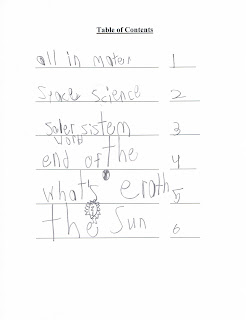 Table of Contents
all in moten 1
Space science 2
soler sistem 3
worb
end of the 4
what's erath 5
the Sun 6